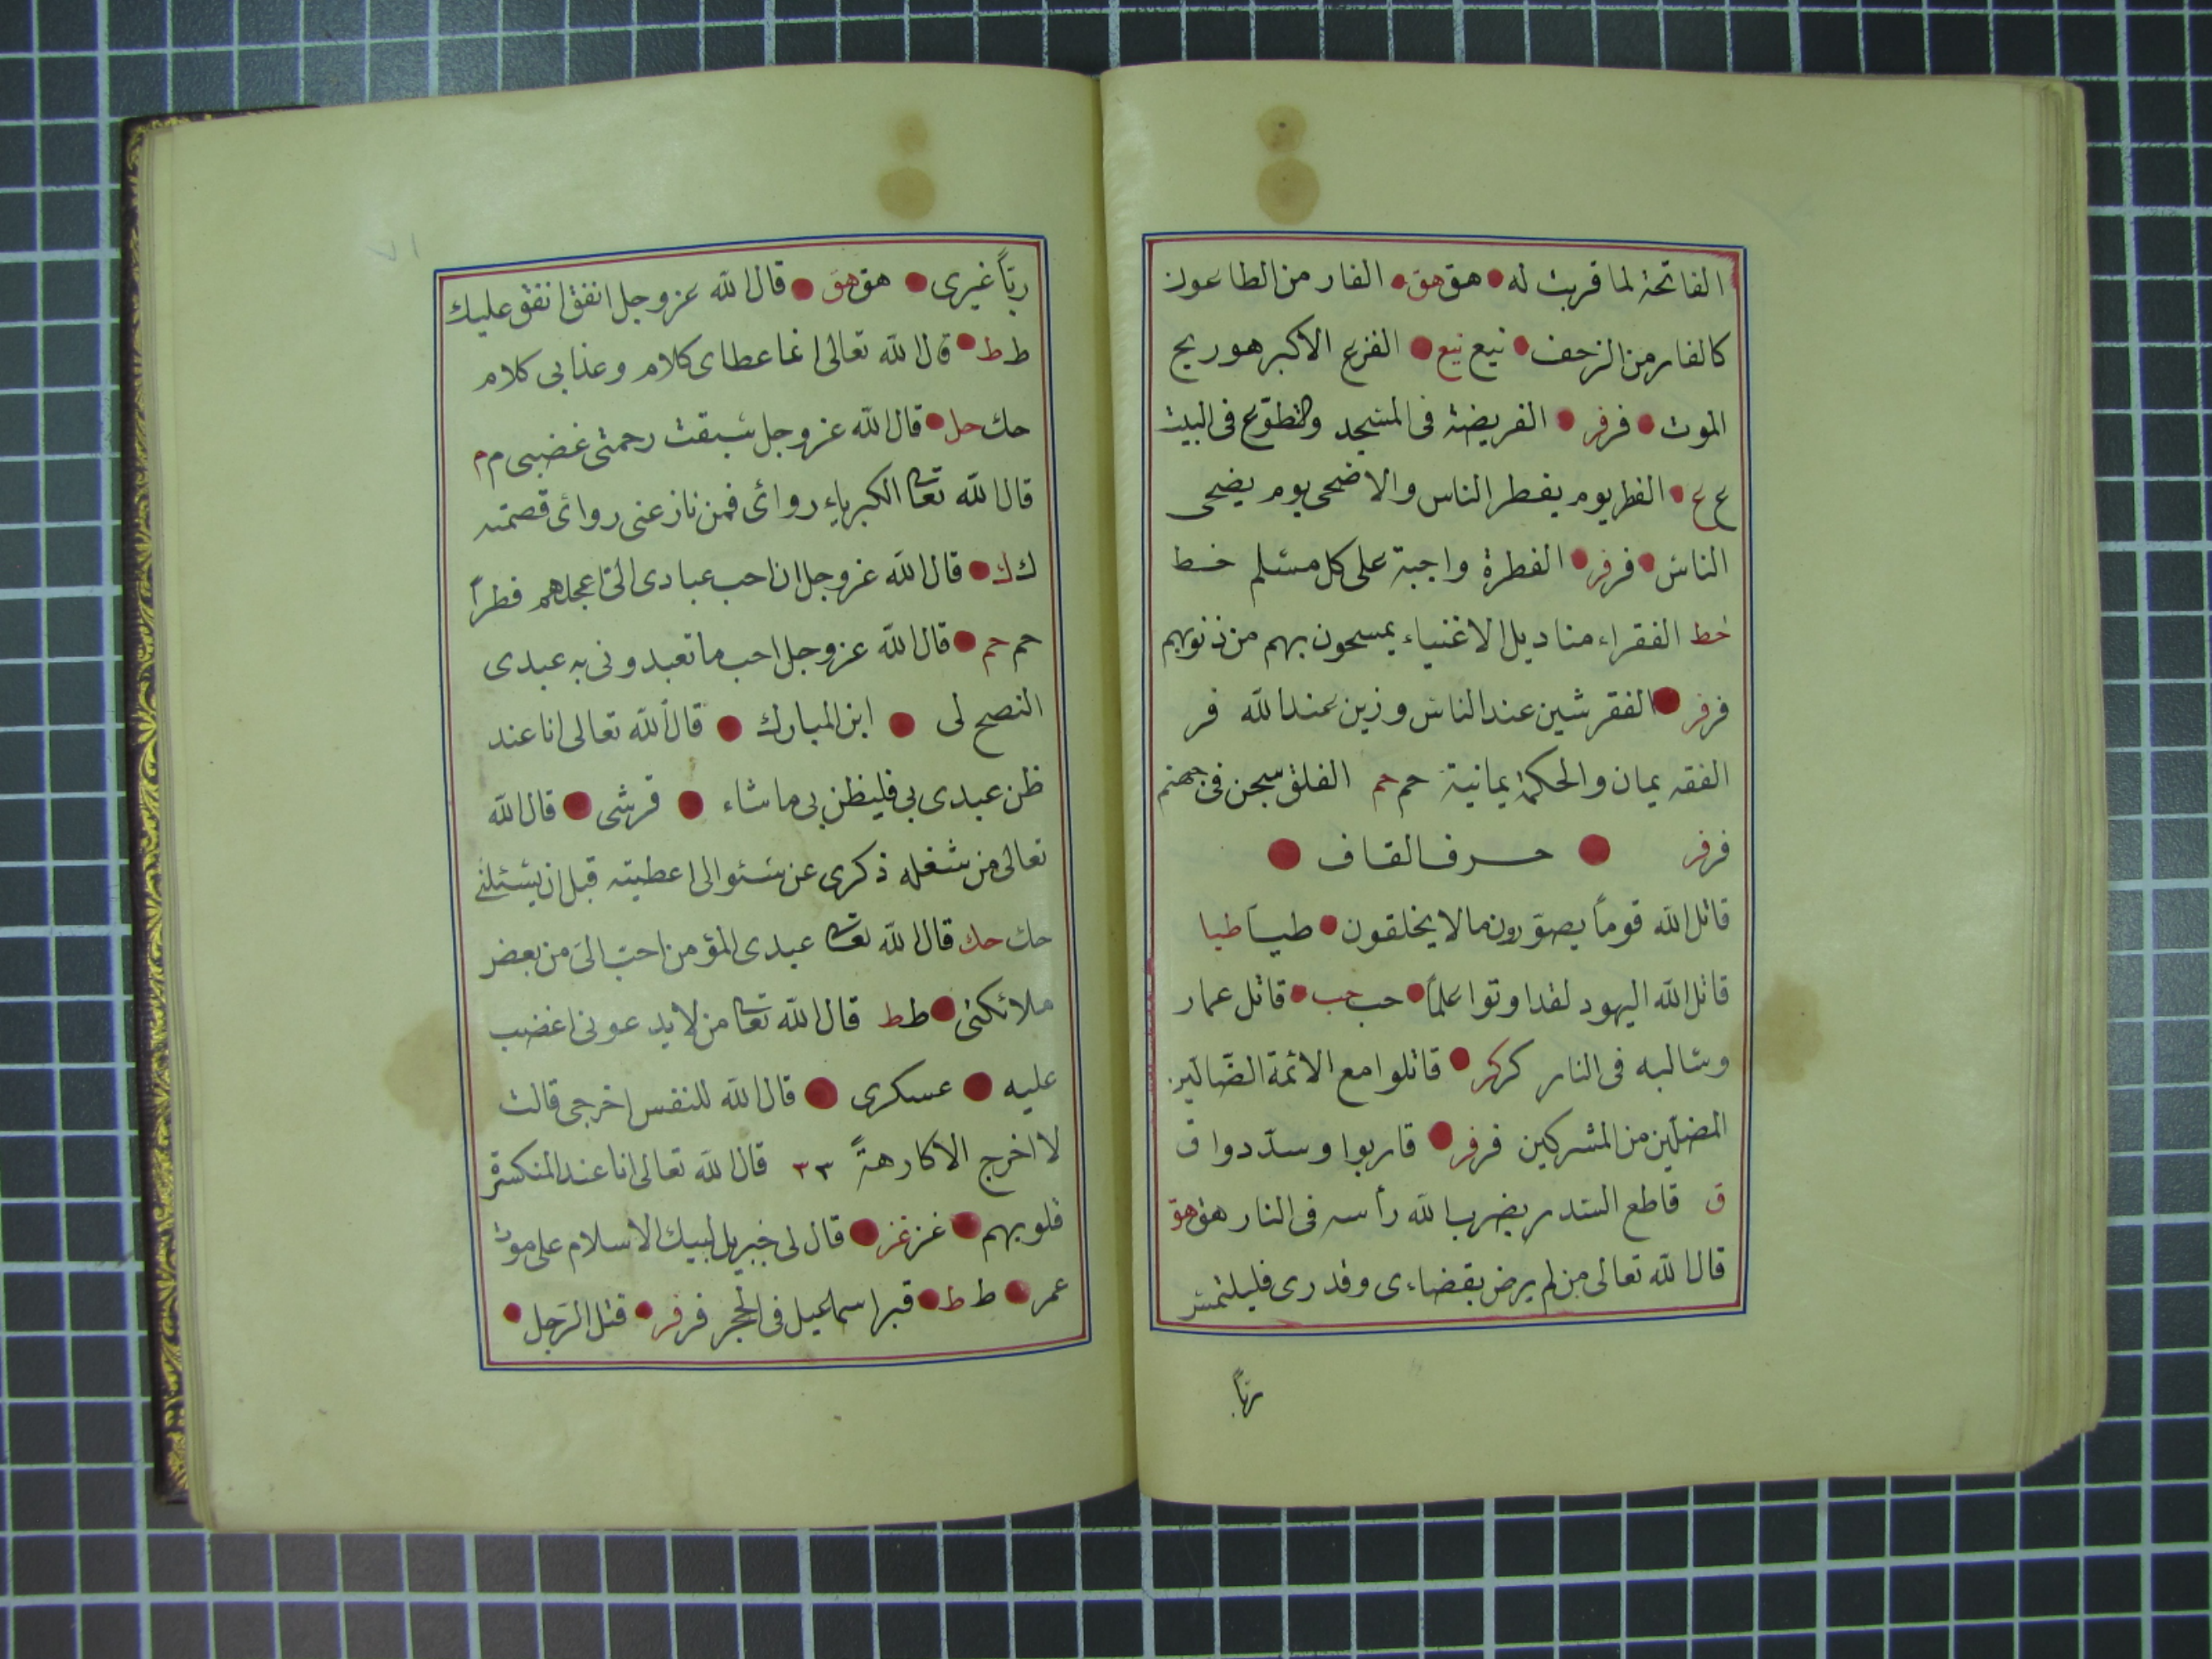 الفاتحة لما قربت له هق هق الفار من الطاعون
كالفار من الزحف نيع نيع الفزع الاكبر هو ريح
الموت فر فر الفريضة فى المسجد والتطوّع فى البيت
ع ع الفطر يوم يفطر الناس والاضحى يوم يضحى
الناس فر فر الفطرة واجبة على كل مسلم خط
خط الفقراء مناديل الاغنياء يمسحون بهم من ذنوبهم
فر فر الفقر شين عند الناس وزين عند الله فر
الفقه يمان والحكمة يمانية حم حم الفلق سجن فى جهنم
فر فر حرف القاف
قاتل الله قوماً يصوّرون مالا يخلقون طيا طيا
قاتل الله اليهود لقد اوتوا علماً حب حب قاتل عمار
وسالبه فى النار كر كر قاتلوا مع الائمة الضّالين
المضلّين من المشركين فر فر قاربوا وسدّدوا ق
ق قاطع السدر يضرب الله رأسه فى النار هق هق
قال الله تعالى من لم يرض بقضاءى وقدرى فليلتمس
ربّاً
ربّاً غيرى هق هق قال الله عز وجل انفق انفق عليك
ط ط قال الله تعالى انما عطاى كلام وعذابى كلام
حك حل قال الله عز وجل سبقت رحمتى غضبى م م
قال الله تعا الكبرياء روائى فمن نازعنى روائى قصمته
ك ك قال الله عز وجل ان احب عبادى الىّ اعجلهم فطراً
حم حم قال الله عز وجل احب ما تعبدونى به عبدى
النصح لى ابن المبارك قال الله تعالى انا عند
ظن عبدى بى فليظن بى ما شاء قرشى قال الله
تعالى من شغله ذكرى عن سئوالى اعطيته قبل ان يسئلنى
حك حك قال الله تعا عبدى المؤمن احبّ الىّ من بعض
ملائكتى ط ط قال الله تعا من لا يدعونى اغضب
عليه عسكرى قال الله للنفس اخرجى قالت
لا اخرج الا كارهةً قال الله تعالى انا عند المنكسرة
قلوبهم غز غز قال لى جبريل ليبك الاسلام على موت
عمر ط ط قبر اسماعيل فى الحجر فر فر قتل الرّجل